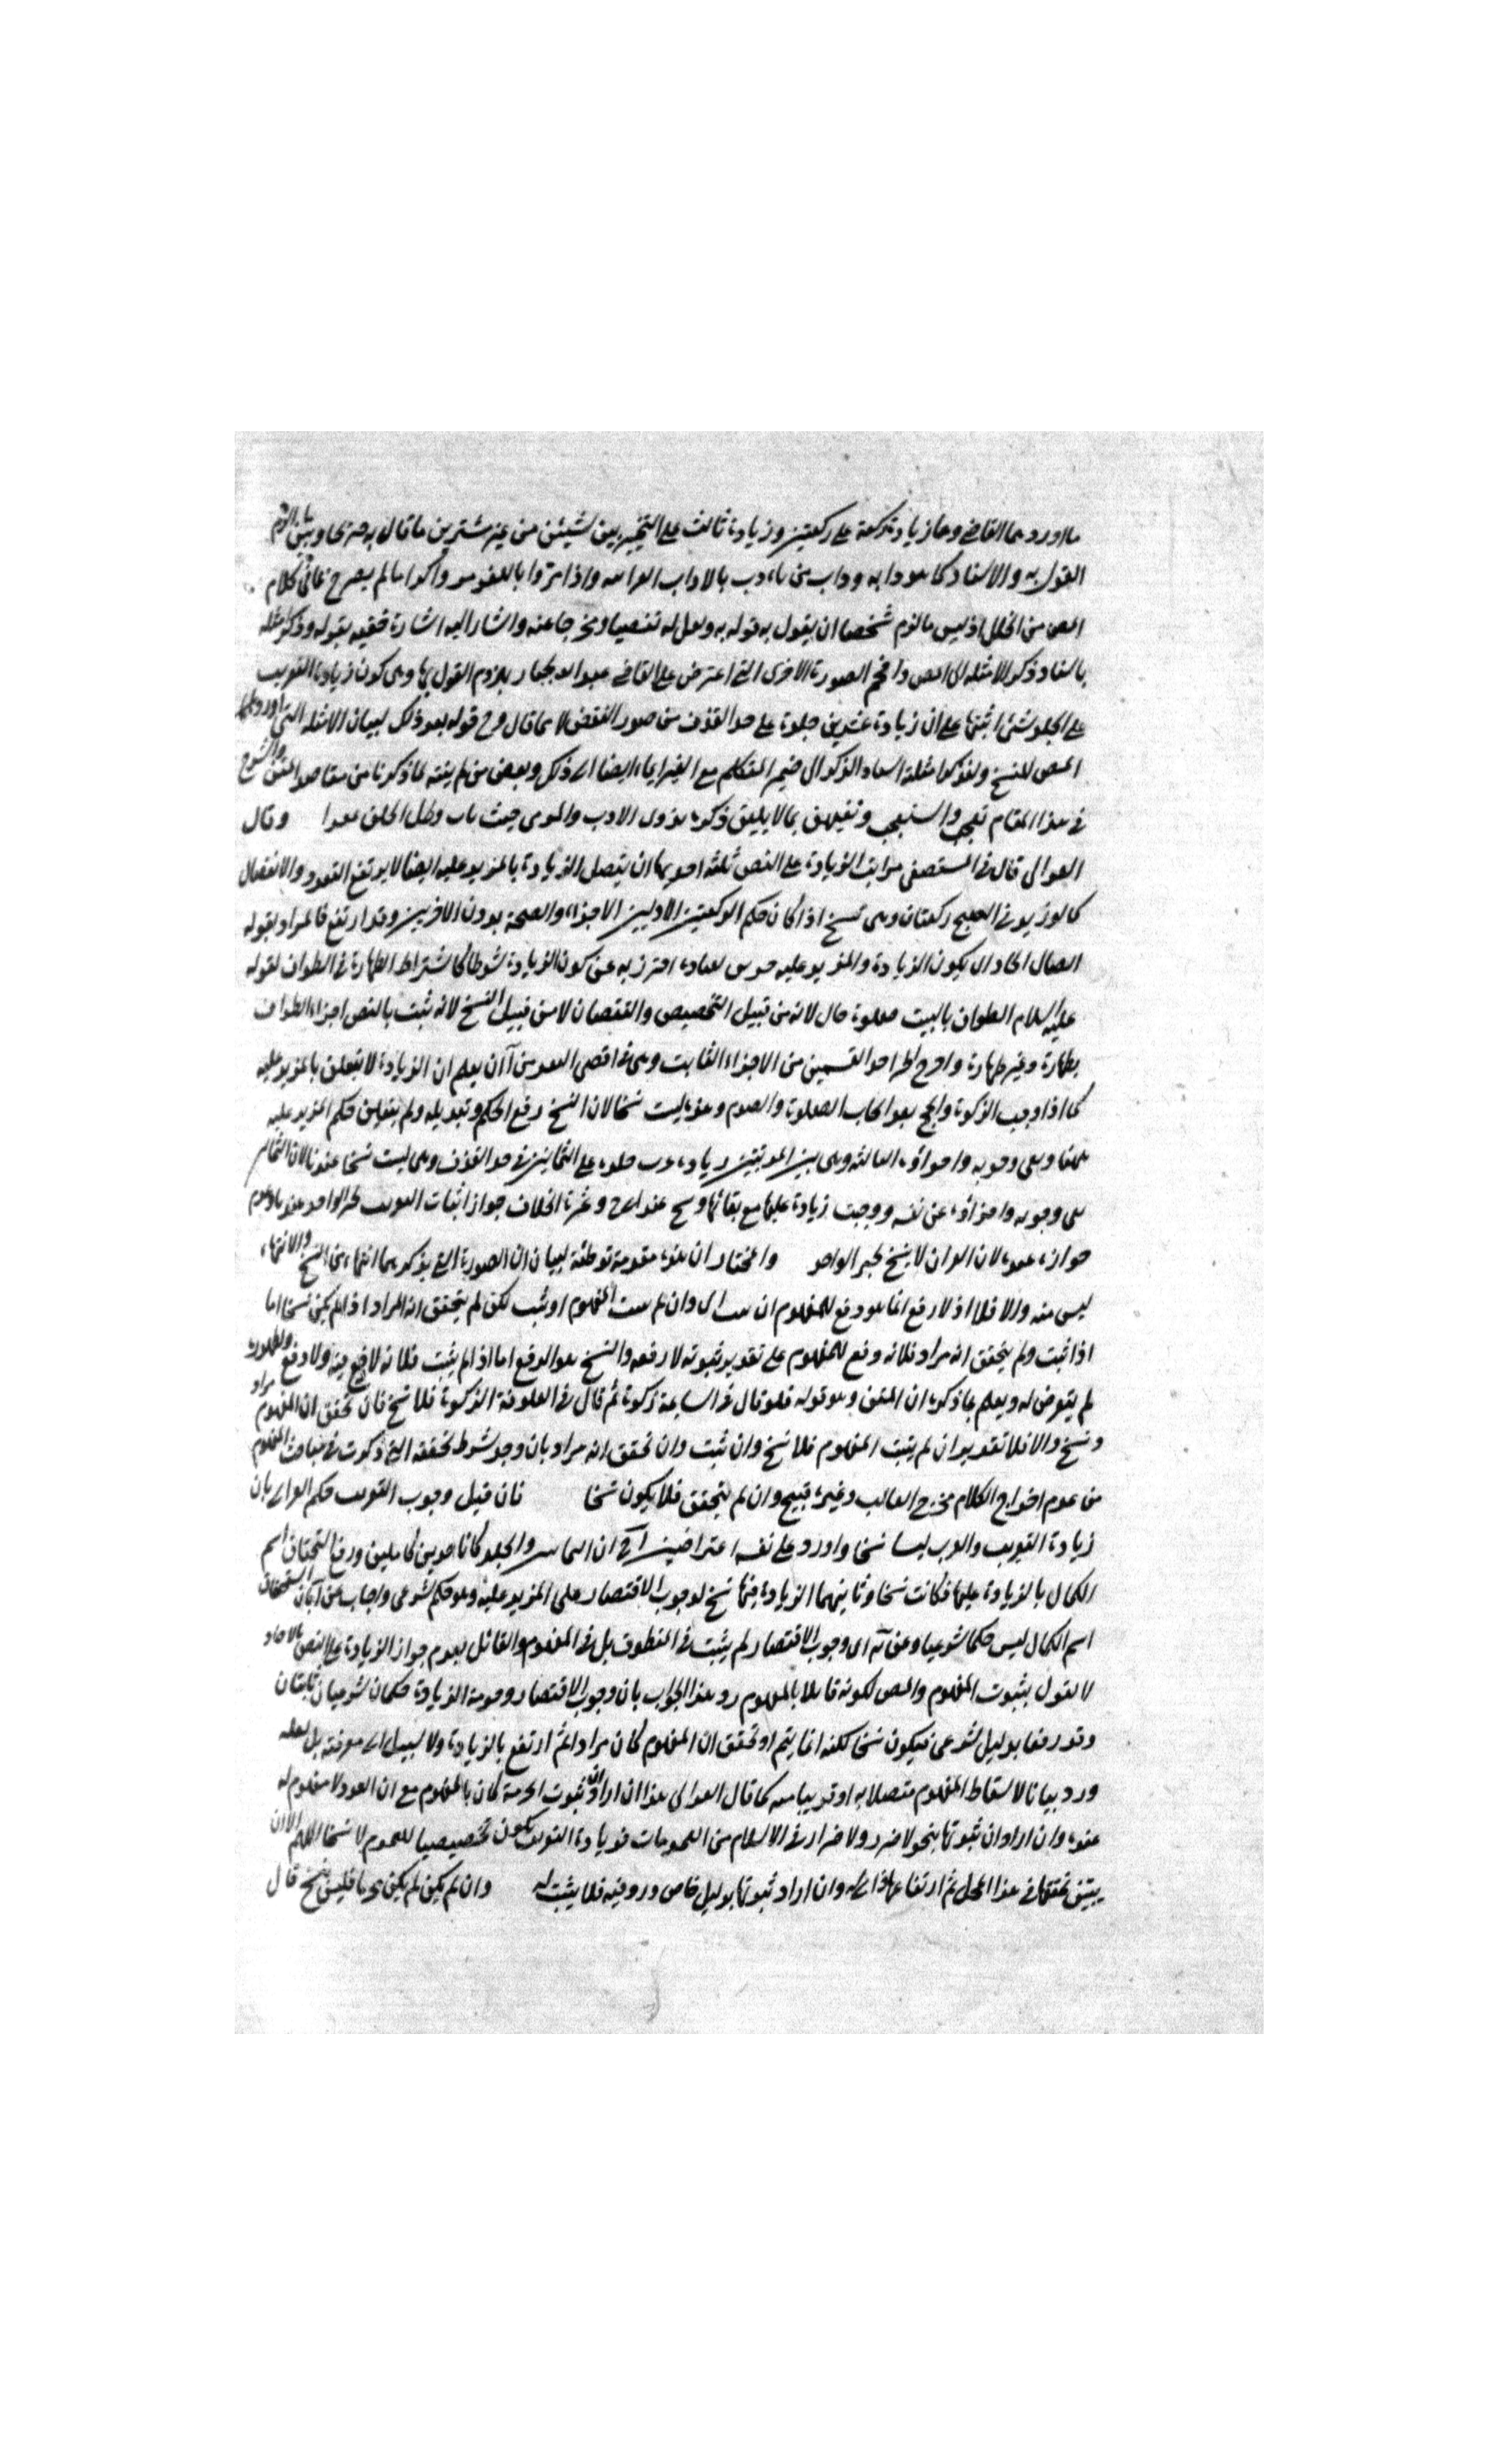 ما اوردهما القاضي وهما زيادة ركعة على ركعتين وزيادة ثالث على التخيير بين شيئين من غير شترين ما قال به صريحا وبين ما الزم
القول به والاستاد كما هو دابه وداب من تادب بالاداب واذا مروا باللغو مروا كراما لم يصرح بما في كلام
المص من الخلل اذ ليس ما لزم شخصا ان يقول به قوله به وجعل له تفصيا ومخرجا عنه واشار اليه اشارة خفية بقوله وذكر امثلة
باسناد ذكر الامثلة الى المص واقحم الصورة الاخرى التي اعترض على القاضي عبد الجبار بلزوم القول بها وهي كون زيادة التغريب
على الجلد شئ اثبتها على ان زيادة عشرين جلدة على حد القذف من صور النقض لا مما قال وح قوله بعد ذلك لبيان الامثلة التي اوردها
المص للنسخ ولنذكر امثلة اسناد الذكر الى ضمير المتكلم مع الغير ايماء ايضا الى ذلك وبعض من لم ينتبه لما ذكرنا من مقاصد المتن والشرح
في هذا المقام تعجب واستعجب وتفيهق بما لا يليق ذكره بذوي الادب وقال
الغزالي قال في المستصفى مراتب الزيادة على النص ثلثة احديها ان يتصل الزيادة بالمزيد عليه ايضا لا يرتفع التعدد والانفصال
كما لو زيد في الصبح ركعتان وهي نسخ اذا كان حكم الركعتين الاوليين الاجزاء والصحة بدون الاخريين وقد ارتفع فالمراد بقوله
اتصال اتحاد ان يكون الزيادة والمزيد عليه احترز به عن كون الزيادة شرطا كاشتراط الطهارة في الطواف لقوله
عليه السلام الطواف بالبيت صلوة حال لانه من قبيل التخصيص والنقصان لا من قبيل النسخ لانه ثبت بالنص اجزاء الطواف
بطهارة وغير طهارة واخرج احد القسمين من الاجزاء الثابت وهي في اقصى البعد من ان يعلم ان الزيادة لا يتعلق بالمزيد عليه
كما اذا وجب الزكوة والحج بعد ايجاب الصلوة والصوم وهذه ليست نسخا لان النسخ رفع الحكم وتبديله ولم يتغير حكم المزيد عليه
بل بقي وجوبه واجزاؤه الثالثة وهي بين المرتبتين زيادة على الثمانين في حد القذف وهي ليست نسخا عندنا لان الثمانين
بقي وجوبه واجزاؤه عن نفسه ووجبت زيادة عليها مع بقائها ونسخ عند ابي ح وثمرة الخلاف جواز اثبات التغريب بخبر الواحد عندنا وعدم
جوازه عنده لان القران لا ينسخ بخبر الواحد والمختار ان هذه مقدمة توطئة لبيان ان الصورة التي يذكر بما انتهاء من النسخ والانتهاء
ليس منه والا فلا اذ لا رفع انما هو دفع للمفهوم ان ثبت اي وان لم يثبت المفهوم او ثبت لكن لم يتحقق انه المراد اذا لم يكن نسخا اما
اذا ثبت ولم يتحقق انه مراد فلانه دفع للمفهوم على تقدير ثبوته لا رفعه والنسخ هو الرفع اما اذا لم يثبت فلانه لا رفع فيه ولا دفع ولظهوره
لم يتعرض له ويعلم بما ذكره ان المتن وهو قوله فلو قال في السائمة زكوة ثم قال في المعلوفة الزكوة فلا نسخ فان تحقق ان المفهوم مراد
فنسخ والا فلا تقديره ان لم يثبت المفهوم فلا نسخ وان ثبت وان تحقق انه مراد بان وجد شرط تحققه التي ذكرت في مباحث المفهوم
من عدم اخراج الكلام مخرج الغالب وغيره فنسخ وان لم يتحقق فلا يكون نسخا فان قيل وجوب التغريب حكم الغزالي بان
زيادة التغريب ليسا نسخا واورد على نفسه اعتراضين ان الثمانين والجلد كانا حدين كاملين ورفع استحقاق اسم
الكمال بالزيادة عليها فكانت نسخا وثانيهما الزيادة فيها نسخ لوجوب الاقتصار على المزيد عليه وهو حكم شرعي واجاب عن أ بان استحقاق
اسم الكمال ليس حكما شرعيا وعن ب اي وجوب الاقتصار لم يثبت في المنطوق بل في المفهوم والقائل بعدم جواز الزيادة على النص بالاحاد
لا يقول بثبوت المفهوم والمص لكونه قائلا بالمفهوم رد هذا الجواب بان وجوب الاقتصار وحرمة الزيادة حكمان شرعيان ثابتان
وقد رفعا بدليل شرعي فيكون نسخا لكنه انما يتم لو تحقق ان المفهوم كان مرادا ثم ارتفع بالزيادة ولا سبيل الى معرفته بل لعله
ورد بيانا لاسقاط المفهوم متصلا به او قريبا منه كما قال الغزالي هذا ان اراد ان ثبوت الحرمة كان بالمفهوم مع ان العدد لا مفهوم له
عنده وان اراد ان ثبوتها بنحو لا ضرر ولا ضرار في الاسلام من العمومات فزيادة التغريب يكون تخصيصا للعموم لا نسخا اللهم الا ان
يتبين تحققها في هذا المحل ثم ارتفاعها وان اراد ثبوتها بدليل خاص ورد فيه فلا يثبت له وان لم يكن لم يكن مجزيا فليس بنسخ قال